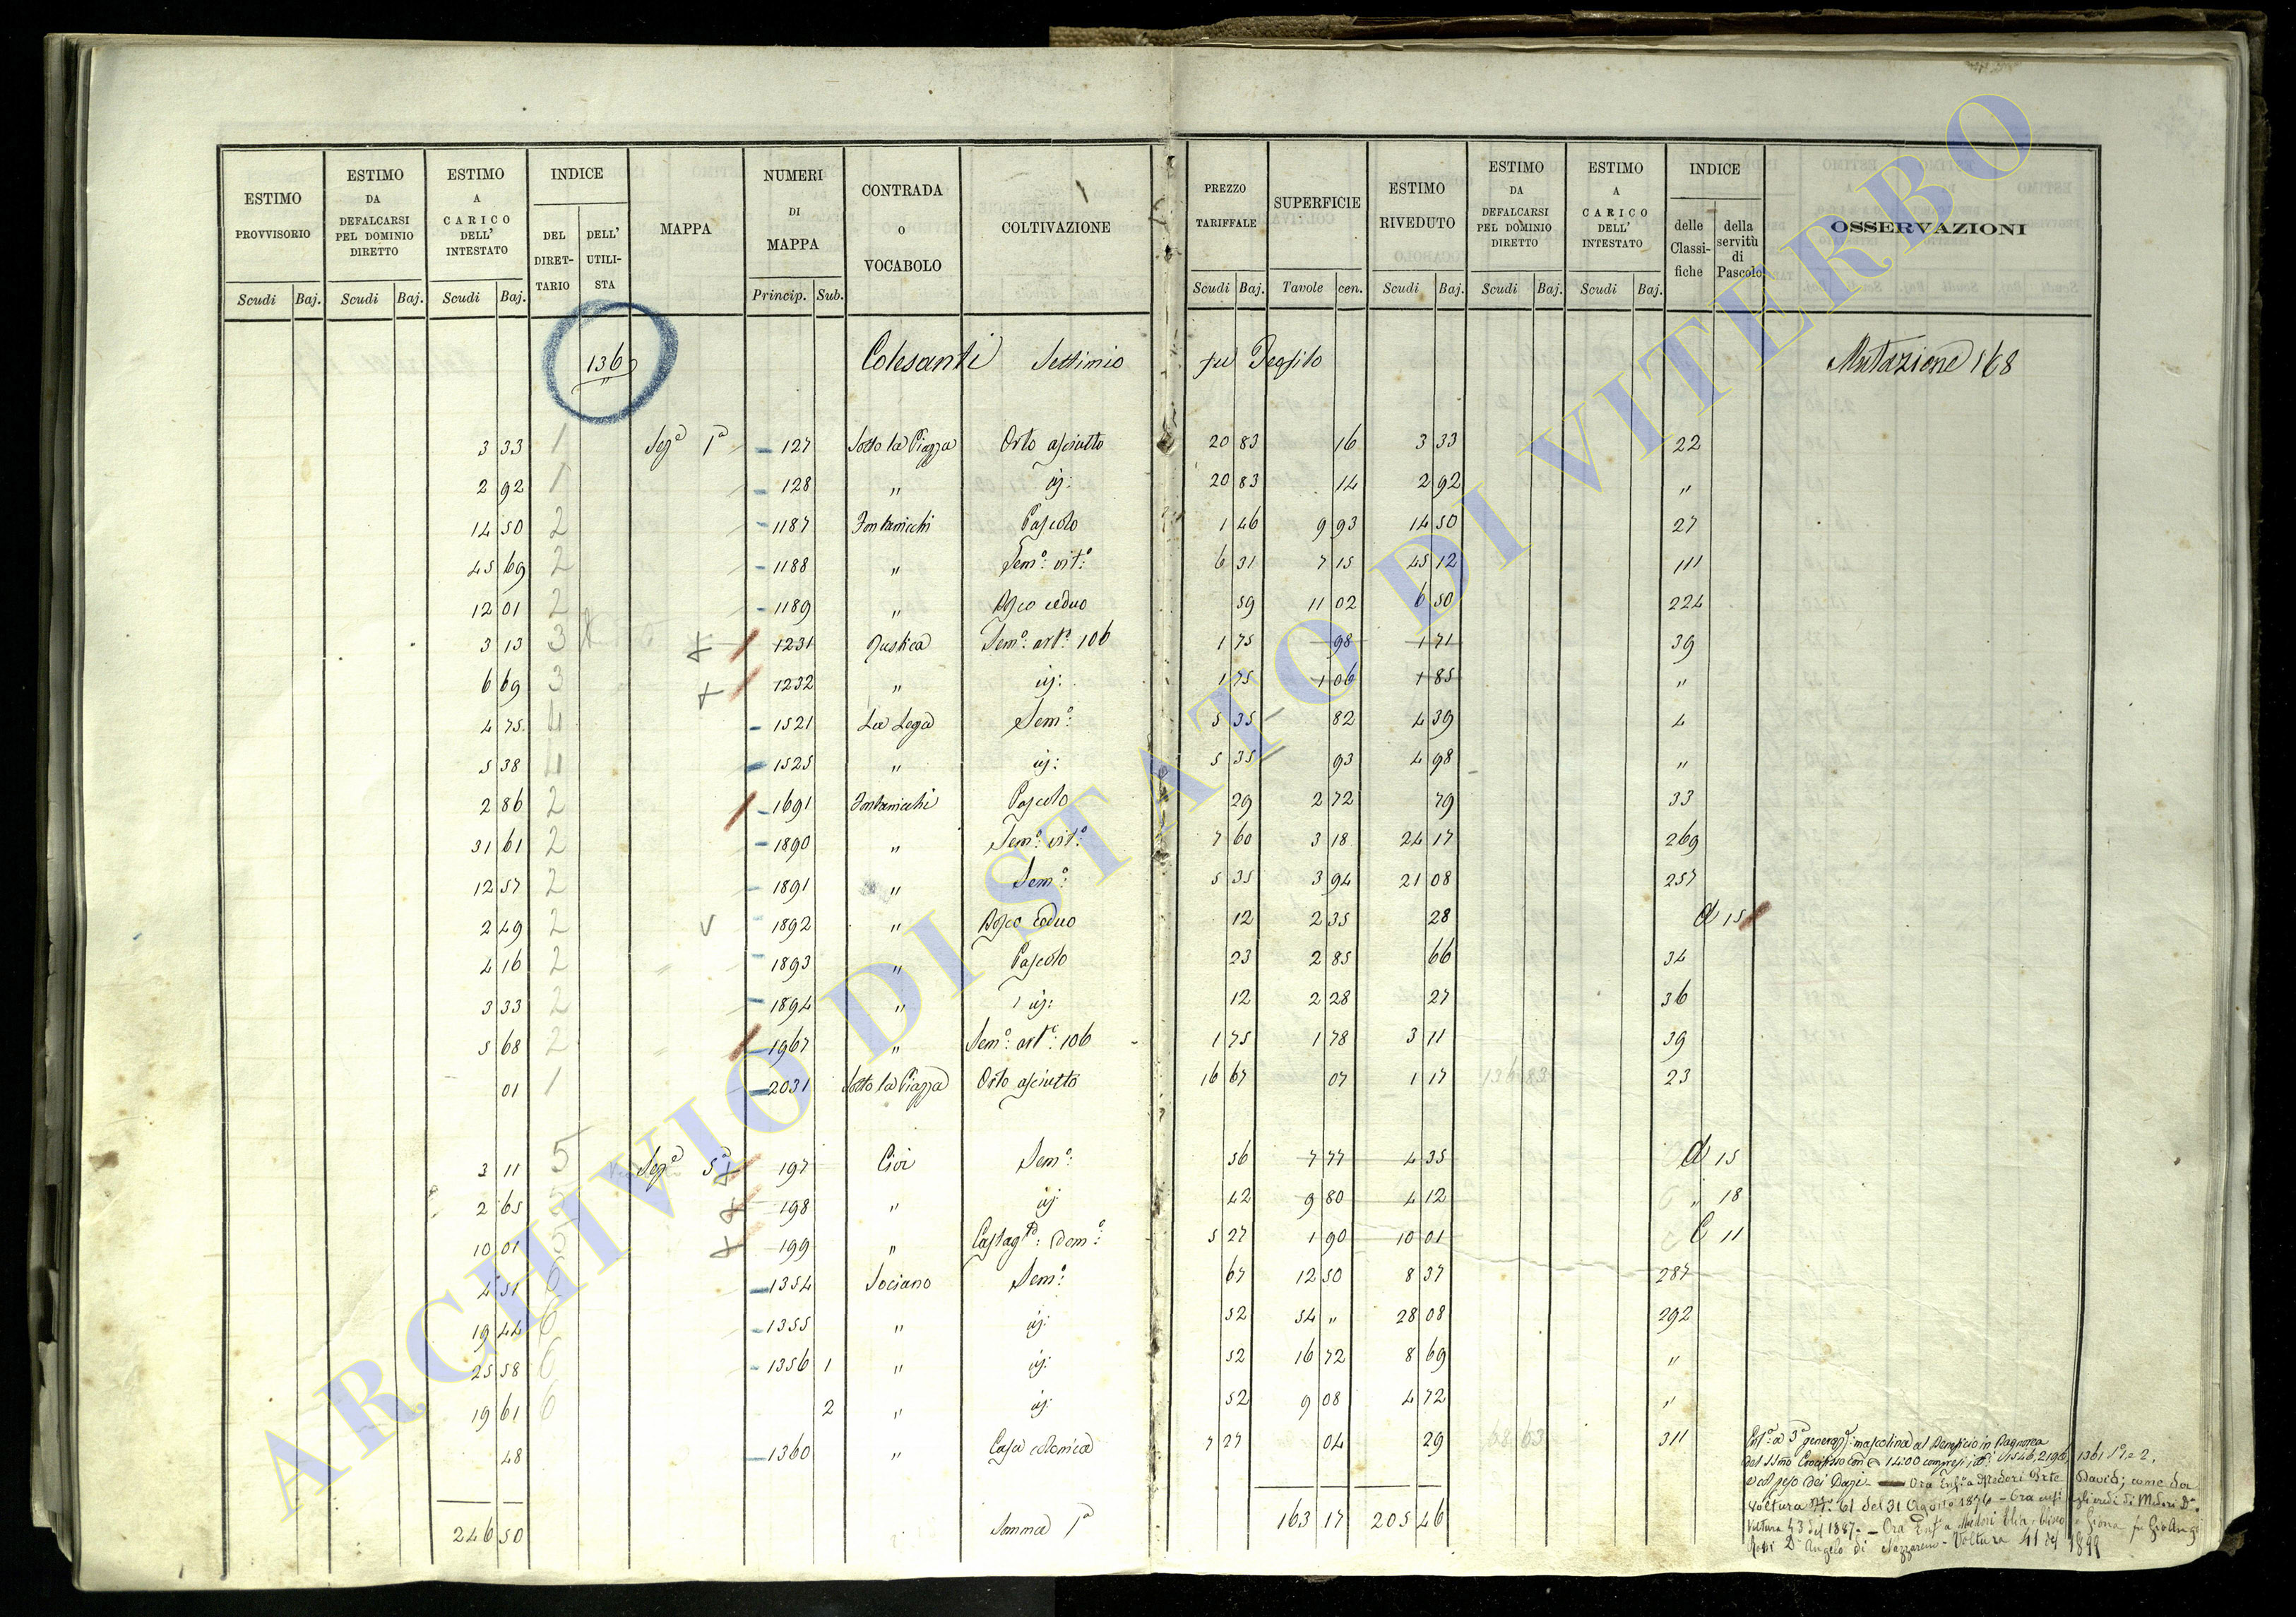 ESTIMO PROVVISORIO Scudi Baj. ESTIMO DA DEFALCARSI PEL DOMINIO DIRETTO Scudi Baj. ESTIMO A CARICO DELL' INTESTATO Scudi Baj. INDICE DEL DIRETTARIO DELL' UTILISTA MAPPA NUMERI DI MAPPA Princip. Sub. CONTRADA O VOCABOLO COLTIVAZIONE PREZZO TARIFFALE Scudi Baj. SUPERFICIE Tavole cen. ESTIMO RIVEDUTO Scudi Baj. ESTIMO DA DEFALCARSI PEL DOMINIO DIRETTO Scudi Baj. ESTIMO A CARICO DELL' INTESTATO Scudi Baj. INDICE delle Classifiche della servitù di Pascolo OSSERVAZIONI
136 Colesanti Settimio Mutazione 168
3 33 1 Sez.e 1a 127 Sotto la Piazza Orto asciutto 20 83 16 3 33 22
2 92 1 128 " id: 20 83 14 2 92 "
14 50 2 1187 Fontanicchi Pascolo 1 46 9 93 14 50 27
45 69 2 1188 " Sem.o vit.o 6 31 7 15 45 12 111
12 01 2 1189 " Bosco ceduo 59 11 02 6 50 224
3 13 3 1231 Sem.o art.o 106 1 75 98 1 71 39
6 69 3 1232 " id: 1 75 1 06 1 85 "
4 75 4 1521 La Lega Sem.o 5 35 82 4 39 4
5 38 4 1525 " id: 5 35 93 4 98 "
2 86 2 1691 Fontanicchi Pascolo 29 2 72 79 33
31 61 2 1890 " Sem.o vit.o 7 60 3 18 24 17 269
12 57 2 1891 " Sem.o 5 35 3 94 21 08 257
2 49 2 1892 " Bosco ceduo 12 2 35 28 d 15
4 16 2 1893 " Pascolo 23 2 85 66 34
3 33 2 1894 " id: 12 2 28 27 36
5 68 2 1967 " Sem.o art.o 106 1 75 1 78 3 11 39
01 1 2031 Sotto la Piazza Orto asciutto 16 67 07 1 17 136 83 23
3 11 5 Sez.e 5a 197 Sem.o 56 7 77 4 35 d 15
2 65 5 198 " id 42 9 80 4 12 " 18
10 01 5 199 " 5 27 1 90 10 01 C 11
4 51 6 1354 Sociano Sem.o 67 12 50 8 37 287
19 44 6 1355 " id: 52 54 " 28 08 292
25 58 6 1356 1 " id: 52 16 72 8 69 "
19 61 6 2 " id: 52 9 08 4 72 "
48 1360 " Casa colonica 7 27 04 29 68 63 311
246 50 Somma 1a 163 17 205 46
Enf.a a 3a generaz.e mascolina al Beneficio in Bagnorea
del SSmo Crocifisso con 14:00 compresi 1546, 2196, 1361 1 e 2,
e col peso dei Dazi - Ora Enf.a a Medori David; come da
Voltura N.o 61 del 31 Agosto 1874 - Ora enf. gli eredi di Medori
Voltura 43 del 1887. - Ora Enf.a a Medori Elia
Angelo di Nazzareno - Voltura 41 del 1899
ARCHIVIO DI STATO DI VITERBO